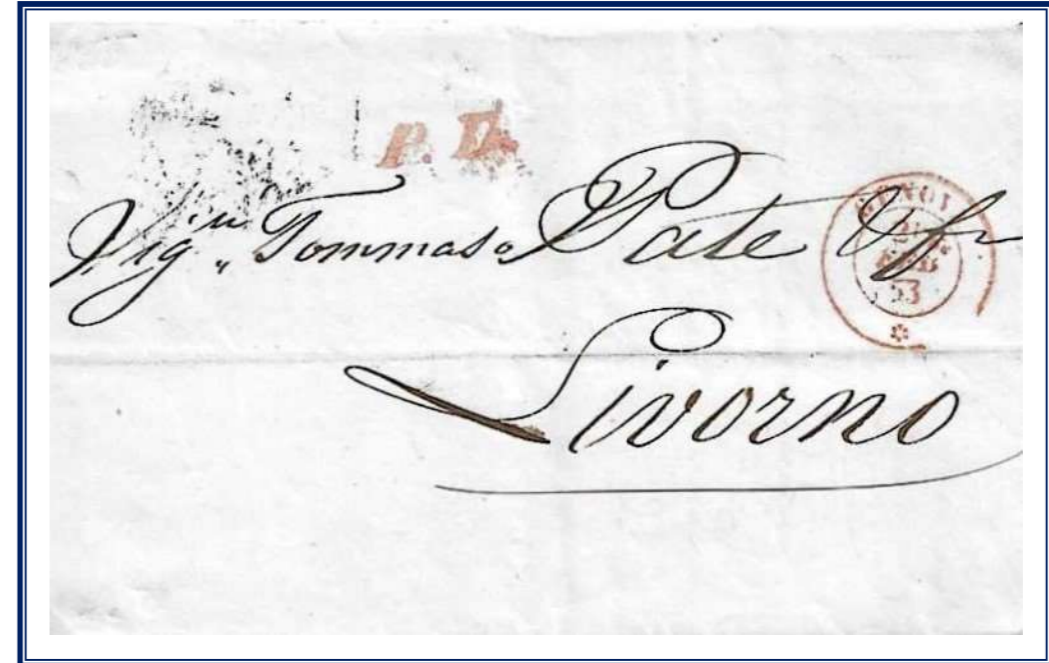 P. D.
Sig.ri Tommaso Pate & fi
Livorno
GENOVA
FEB
53